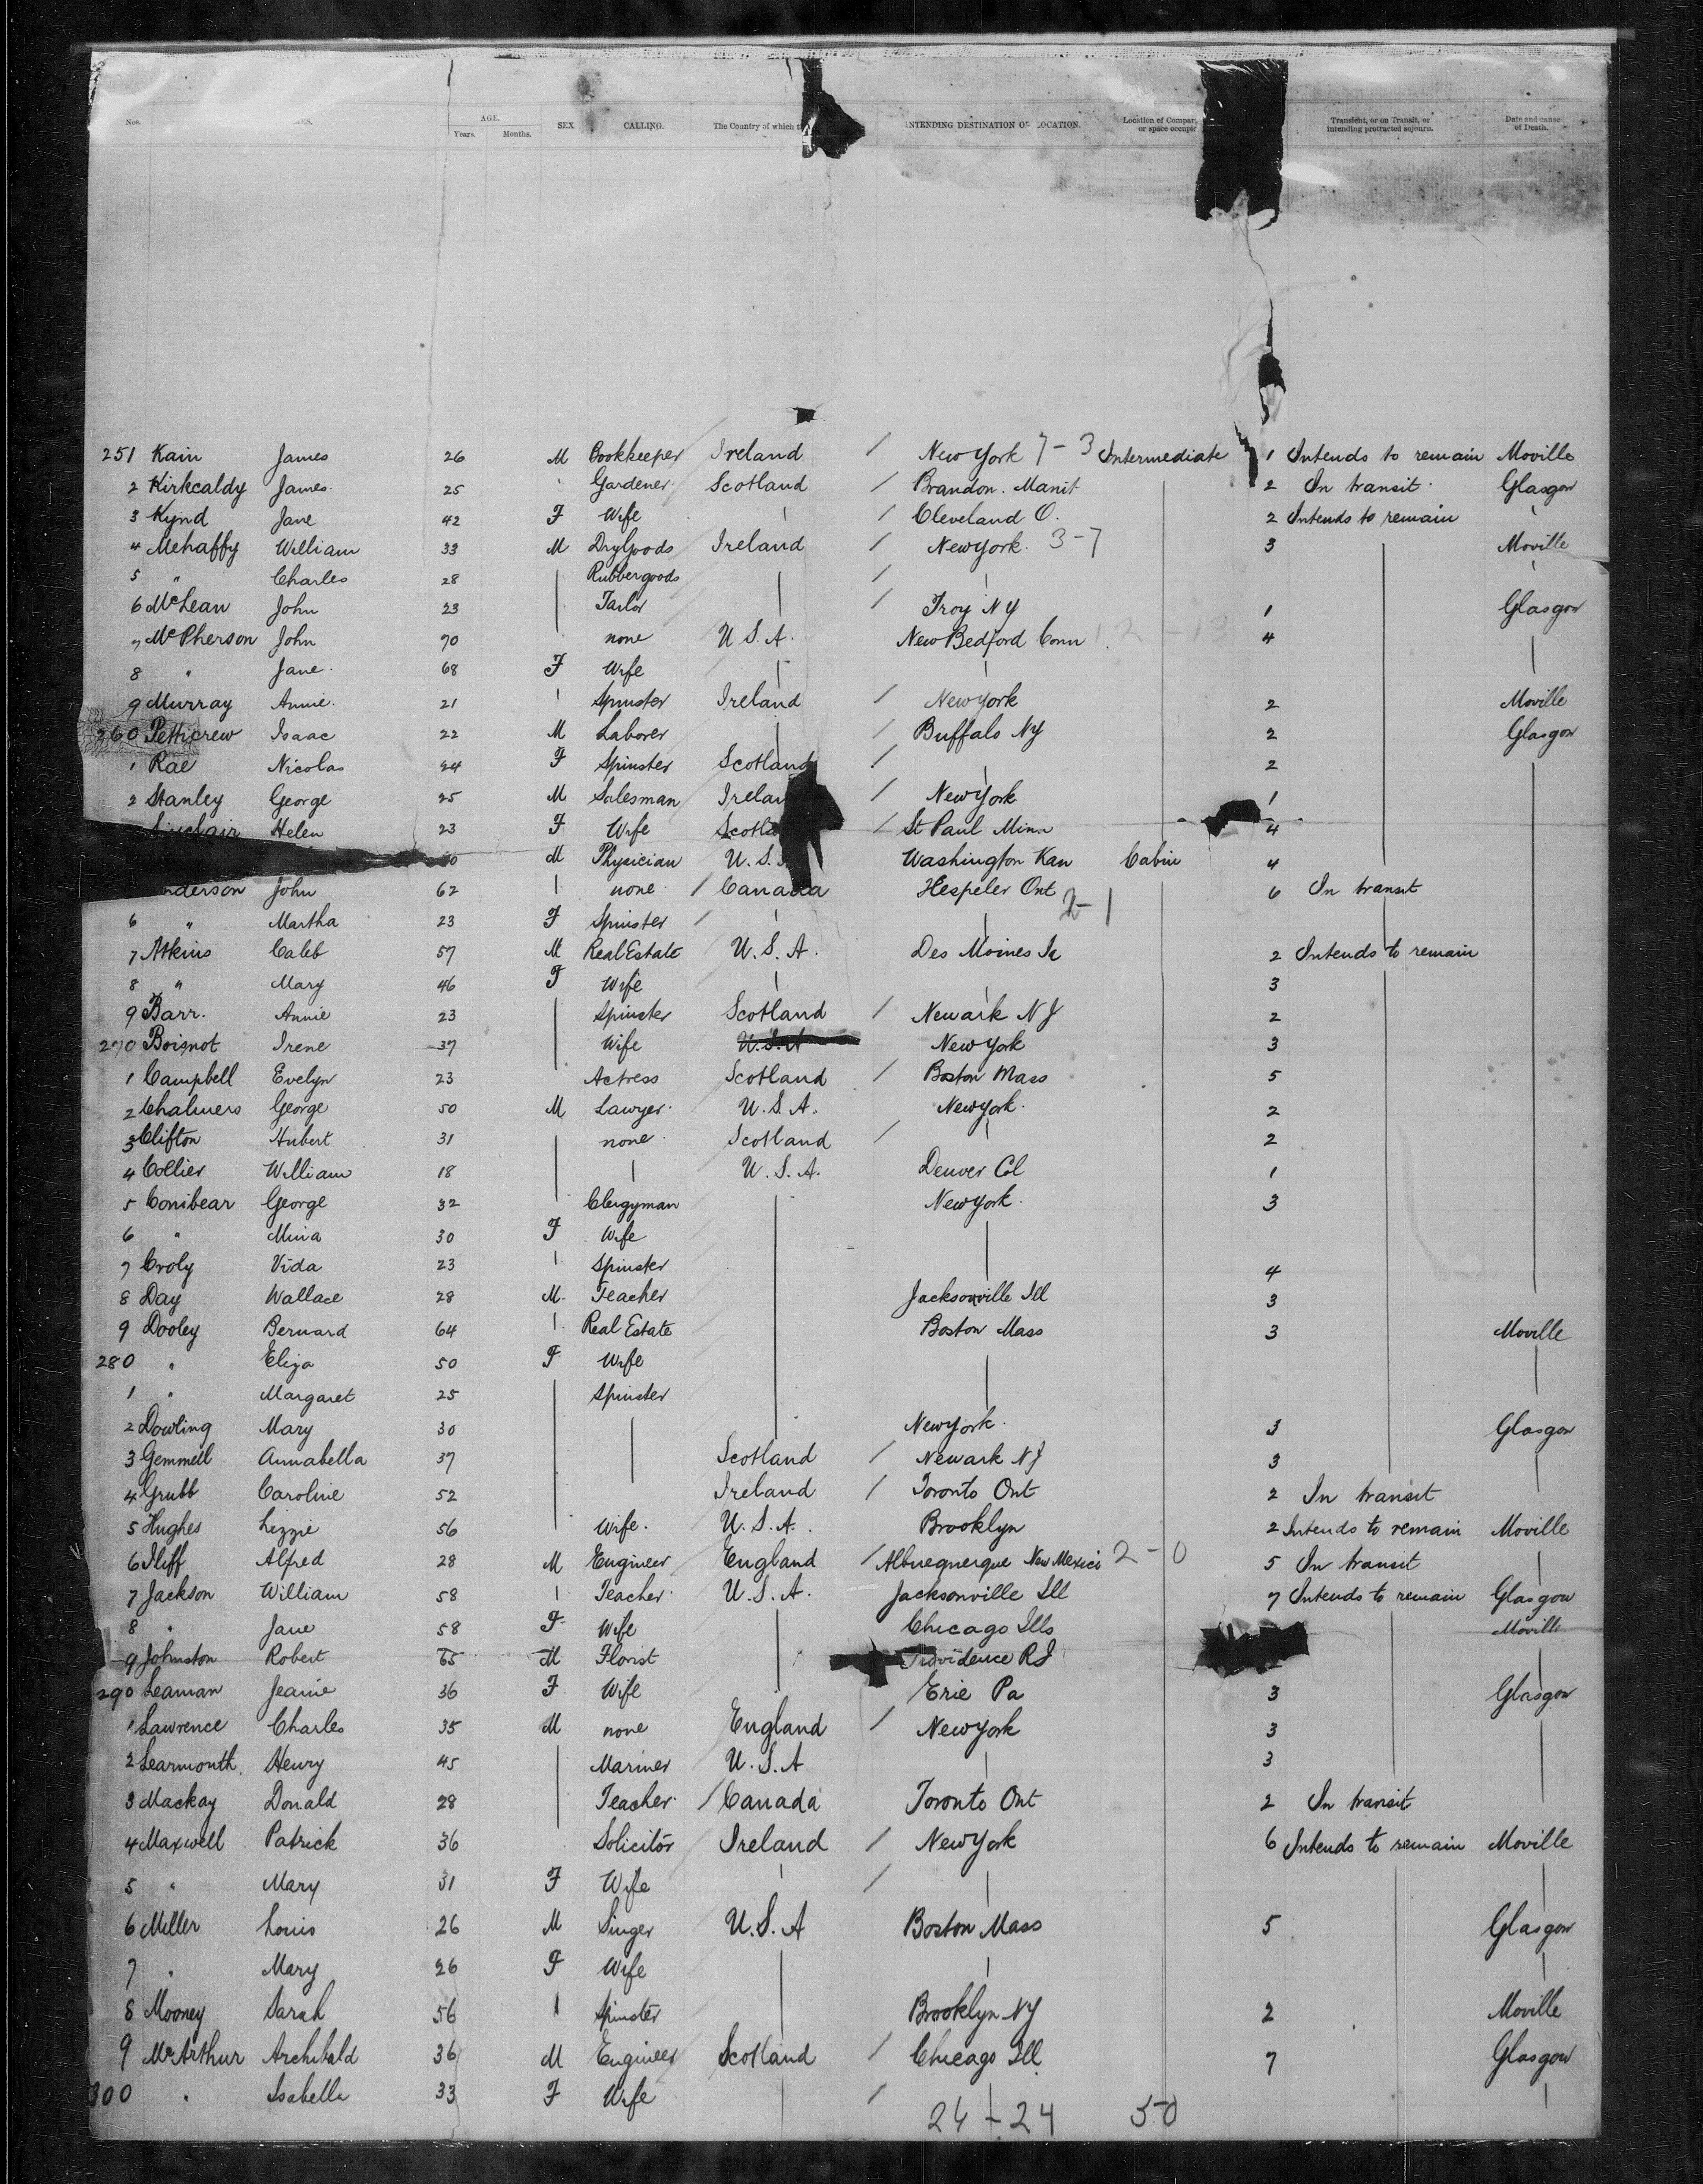 Nos. AGE. Years. Months. SEX CALLING. The Country of which INTENDING DESTINATION OR LOCATION. Location of or space Transient, or on Transit, or intending protracted sojourn. Date and cause of Death.
251 Kain James 26 M Bookkeeper Ireland / New York 7-3 Intermediate 1 Intends to remain Moville
2 Kirkcaldy James 25 Gardener Scotland / Brandon. Manit 2 In transit Glasgow
3 Kynd Jane 42 F Wife / Cleveland O. 2 Intends to remain
4 Mehaffy William 33 M DryGoods Ireland / New York. 3-7 3 Moville
5 " Charles 28 Rubbergoods /
6 McLean John 23 Tailor / Troy NY 1 Glasgow
7 McPherson John 70 none U.S.A. New Bedford Conn 4
8 " Jane 68 F Wife
9 Murray Annie 21 Spinster Ireland / New York 2 Moville
260 Petticrew Isaac 22 M Laborer / Buffalo NY 2 Glasgow
1 Rae Nicolas 24 F Spinster Scotland / 2
2 Stanley George 25 M Salesman Irelan / New York 1
Sinclair Helen 23 F Wife Scotla / St Paul Minn 4
M Physician U.S. Washington Kan Cabin 4
nderson John 62 none / Canada Hespeler Ont 6 In transit
6 " Martha 23 F Spinster / 2-1
7 Atkins Caleb 57 M Real Estate U.S.A. Des Moines Ia 2 Intends to remain
8 " Mary 46 F Wife 3
9 Barr. Annie 23 Spinster Scotland / Newark NJ 2
270 Boisnot Irene 37 Wife U.S.A New York 3
1 Campbell Evelyn 23 Actress Scotland / Boston Mass 5
2 Chalmers George 50 M Lawyer U.S.A. New York. 2
3 Clifton Hubert 31 none Scotland / 2
4 Collier William 18 U.S.A. Denver Col 1
5 Conibear George 32 Clergyman New York. 3
6 " Mina 30 F Wife
7 Croly Vida 23 Spinster 4
8 Day Wallace 28 M. Teacher Jacksonville Ill 3
9 Dooley Bernard 64 Real Estate Boston Mass 3 Moville
280 " Eliza 50 F Wife
1 " Margaret 25 Spinster
2 Dowling Mary 30 New York. 3 Glasgow
3 Gemmell Annabella 37 Scotland / Newark NJ 3
4 Grubb Caroline 52 Ireland / Toronto Ont 2 In transit
5 Hughes Lizzie 56 Wife. U.S.A. Brooklyn 2 Intends to remain Moville
6 Iliff Alfred 28 M Engineer England / Albuequerque New Mexico 2-0 5 In transit
7 Jackson William 58 Teacher U.S.A. Jacksonville Ill 7 Intends to remain Glasgow
8 " Jane 58 F Wife Chicago Ills Moville
9 Johnston Robert 65 M Florist Providence RI
290 Leaman Jeanie 36 F Wife Erie Pa 3 Glasgow
1 Lawrence Charles 35 M none England / New York 3
2 Learmonth. Henry 45 Mariner U.S.A 3
3 Mackay Donald 28 Teacher / Canada Toronto Ont 2 In transit
4 Maxwell Patrick 36 Solicitor Ireland / New York 6 Intends to remain Moville
5 " Mary 31 F Wife /
6 Miller Louis 26 M Singer U.S.A Boston Mass 5 Glasgow
7 " Mary 26 F Wife
8 Mooney Sarah 56 Spinster Brooklyn NY 2 Moville
9 McArthur Archibald 36 M Engineer Scotland / Chicago Ill 7 Glasgow
300 " Isabella 33 F Wife /
24-24 50